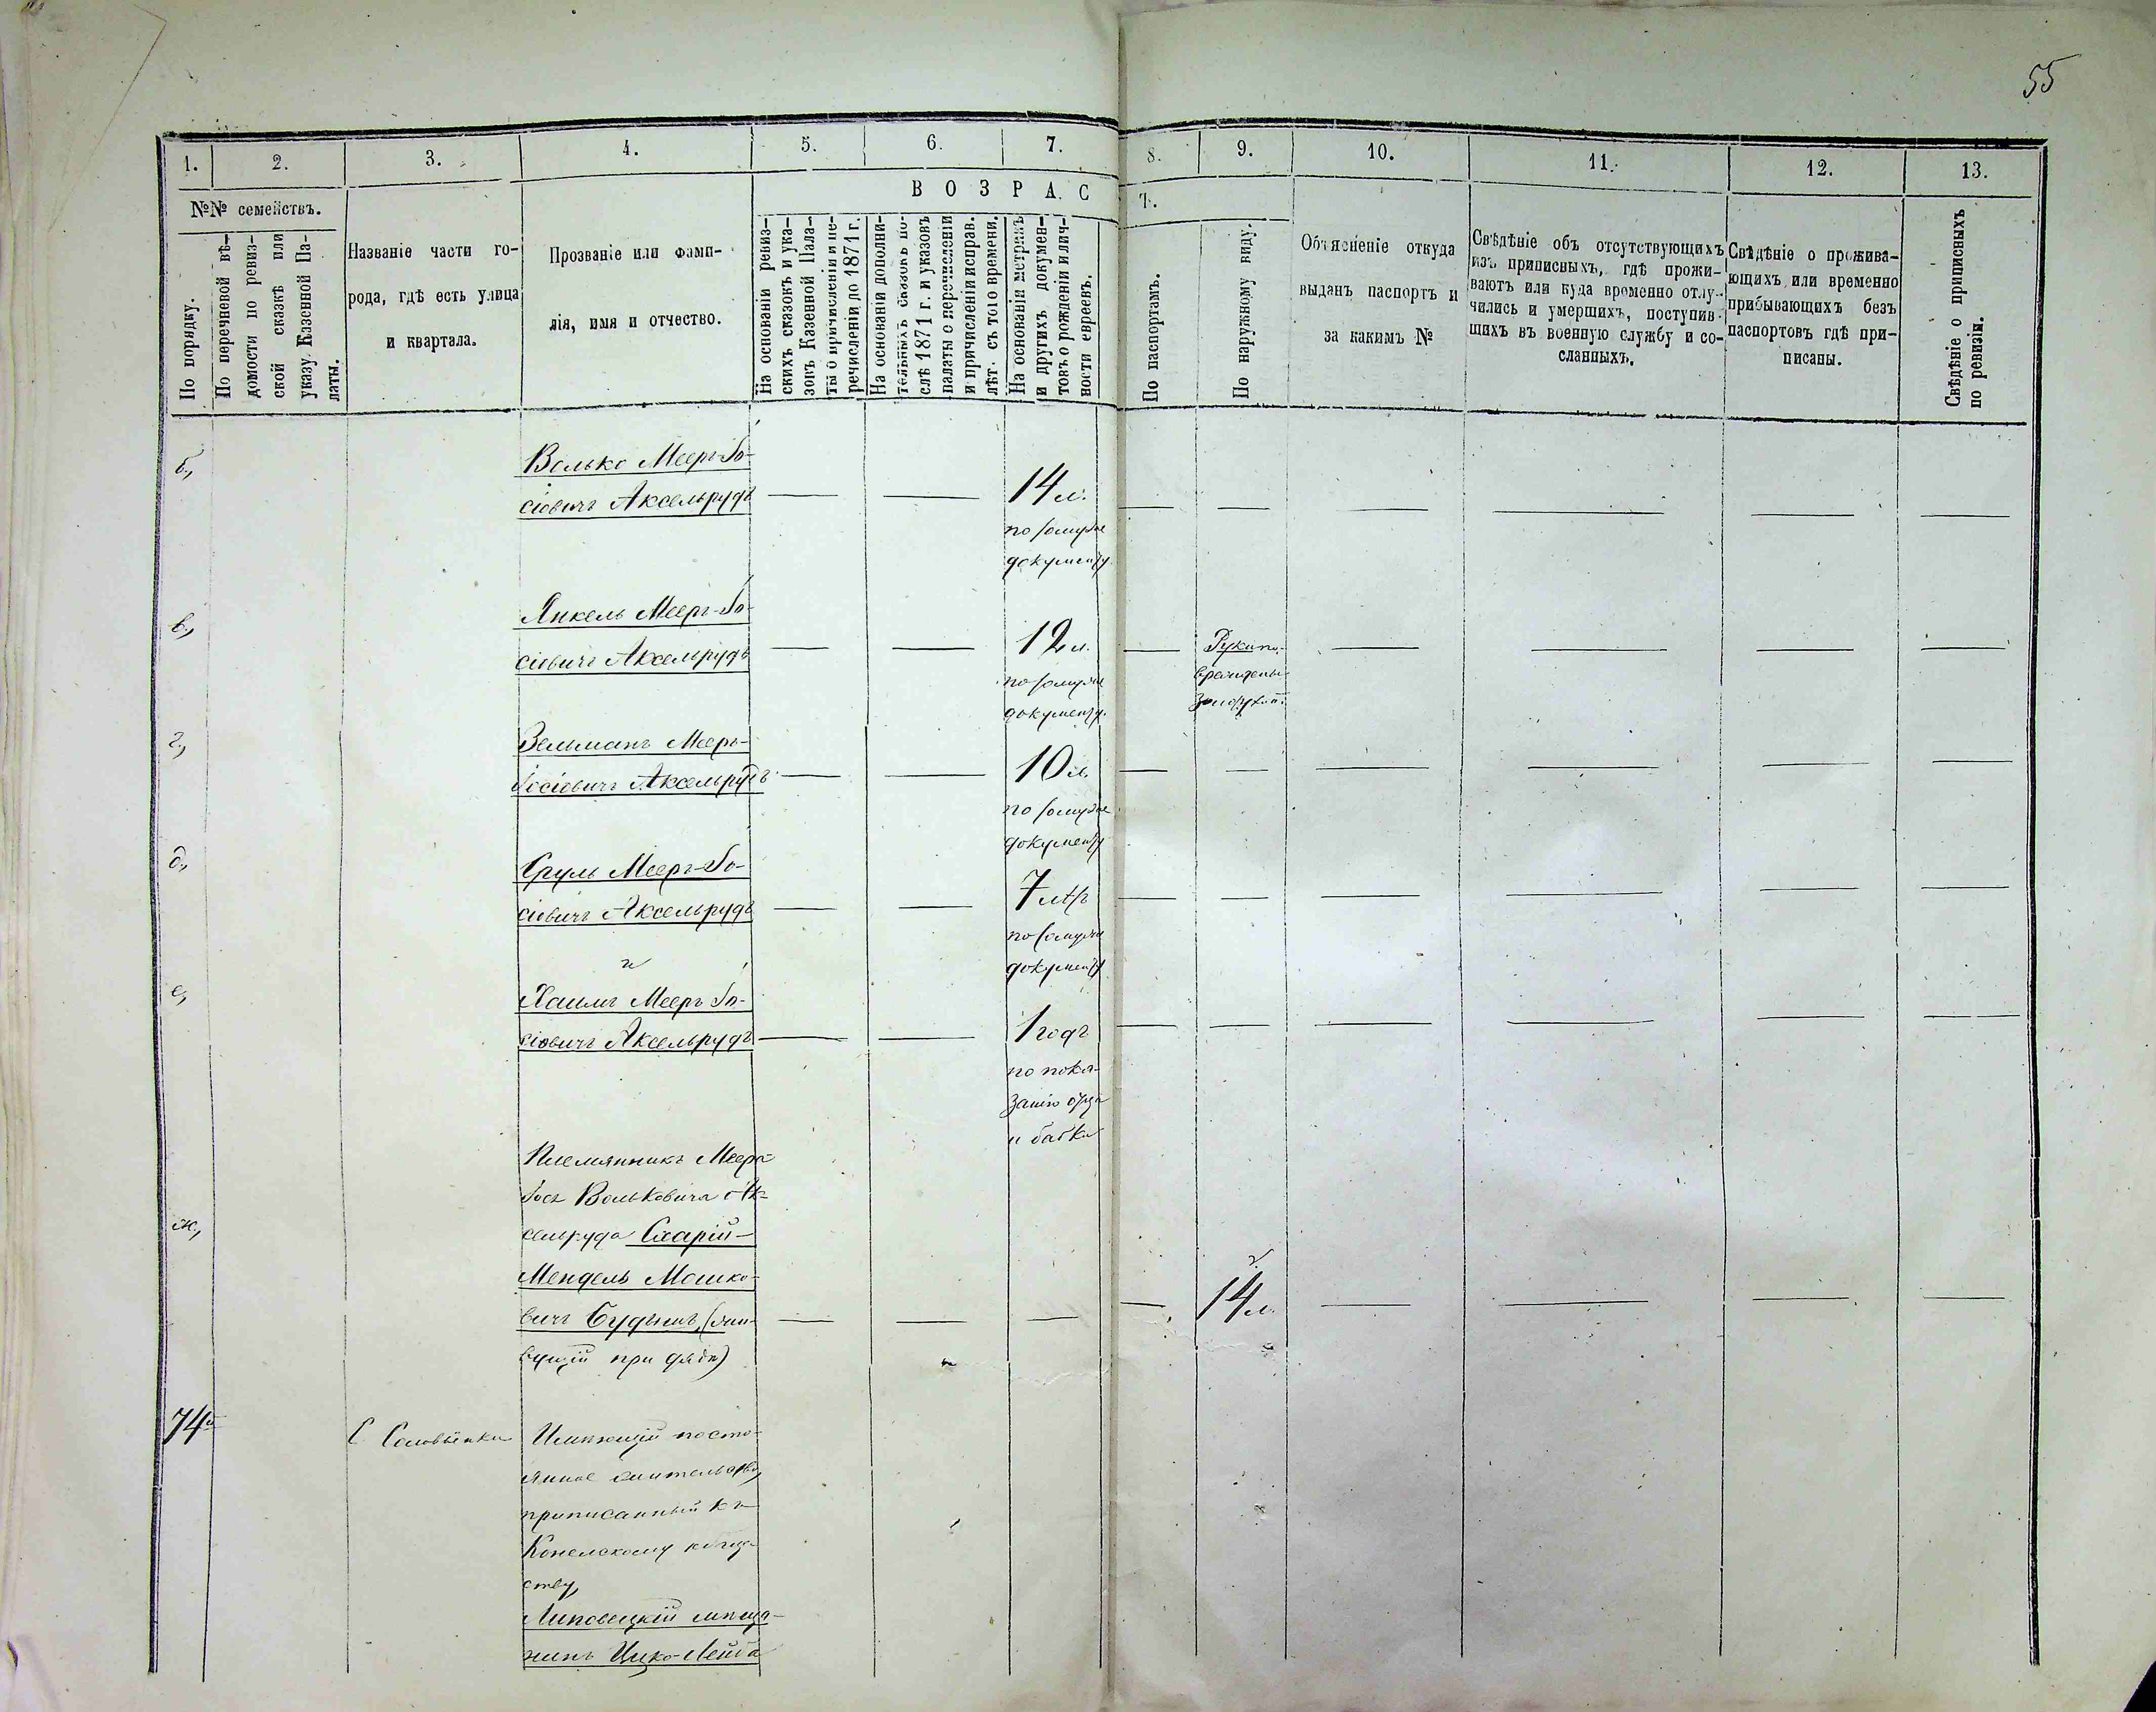 55
1. 2. 3. 4. 5. 6. 7. 8. 9. 10. 11. 12. 13.
ВОЗРАСТ.
№№ семействъ.
По порядку.
По перечневой вѣ-
домости по ревиз-
ской сказкѣ или
указу Казенной Па-
латы.
Названіе части го-
рода, гдѣ есть улица
и квартала.
Прозваніе или фами-
лія, имя и отчество.
На основаніи ревиз-
скихъ сказокъ и ука-
зовъ Казенной Пала-
ты о причисленіи и пе-
речисленіи до 1871 г.
На основаніи дополни-
тельныхъ сказокъ по-
слѣ 1871 г. и указовъ
палаты о перечисленіи
и причисленіи исправ.
лѣт. съ того времени.
На основаніи метрикъ
и другихъ докумен-
товъ о рожденіи и лич-
ности евреевъ.
По паспортамъ.
По наружному виду.
Объясненіе откуда
выданъ паспортъ и
за какимъ №
Свѣдѣніе объ отсутствующихъ
изъ приписныхъ, гдѣ прожи-
ваютъ или куда временно отлу-
чились и умершихъ, поступив-
шихъ въ военную службу и со-
сланныхъ.
Свѣдѣніе о прожива-
ющихъ или временно
прибывающихъ безъ
паспортовъ гдѣ при-
писаны.
Свѣдѣніе о приписныхъ
по ревизіи.
б,
Волько Меер-Іо-
сіовичъ Аксельрудъ
14 л.
по
документу
в,
Янкель Меер-Іо-
сіовичъ Аксельрудъ
12 л.
по
документу.
Рука по-
вреждены
г,
Зельманъ Меер-
Іосіовичъ Аксельрудъ
10 л.
по
документу
д,
Сруль Меер-Іо-
сіовичъ Аксельрудъ
7 лѣтъ
по
документу
и
е,
Хаимъ Меер Іо-
сіовичъ Аксельрудъ
1 годъ
по пока-
занію отца
и бабки
Племянникъ Меера
Іося Вольковича Ак-
ж,
сельруда Схарій-
Мендель Мошко-
вичъ (жи-
вущій при дядѣ)
14 л.
74й
С Соловіевки
Имѣющій посто-
янное жительство,
приписанный къ
Конелскому обще-
ству,
Липовецкій мѣща-
нинъ Ицко-Лейба